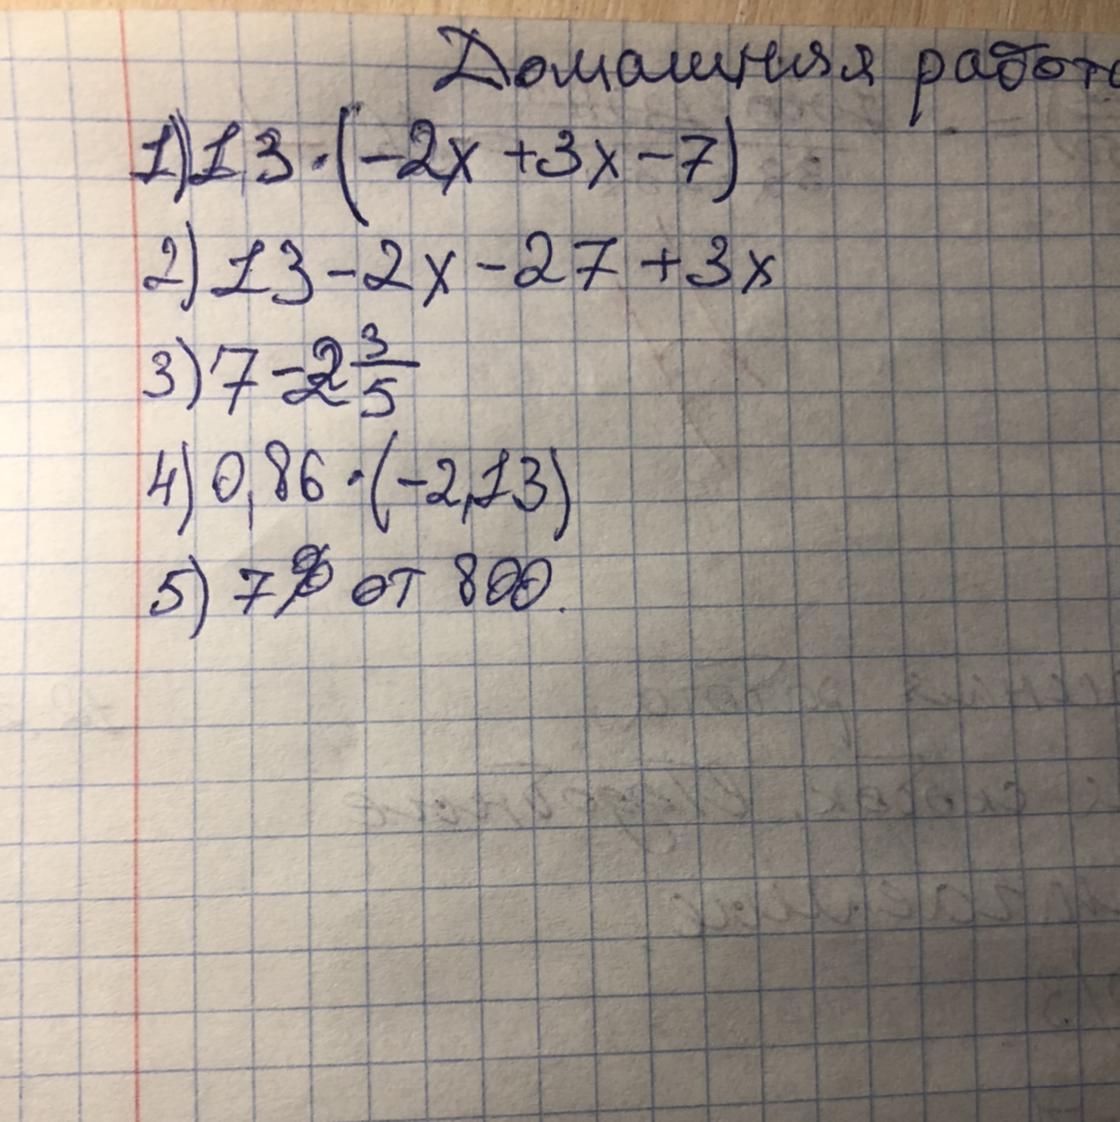 Домашняя работа
1) 1,3 · (-2x + 3x - 7)
2) 13 - 2x - 27 + 3x
3) 7 - 2 3/5
4) 0,86 · (-2,13)
5) 7% от 800.